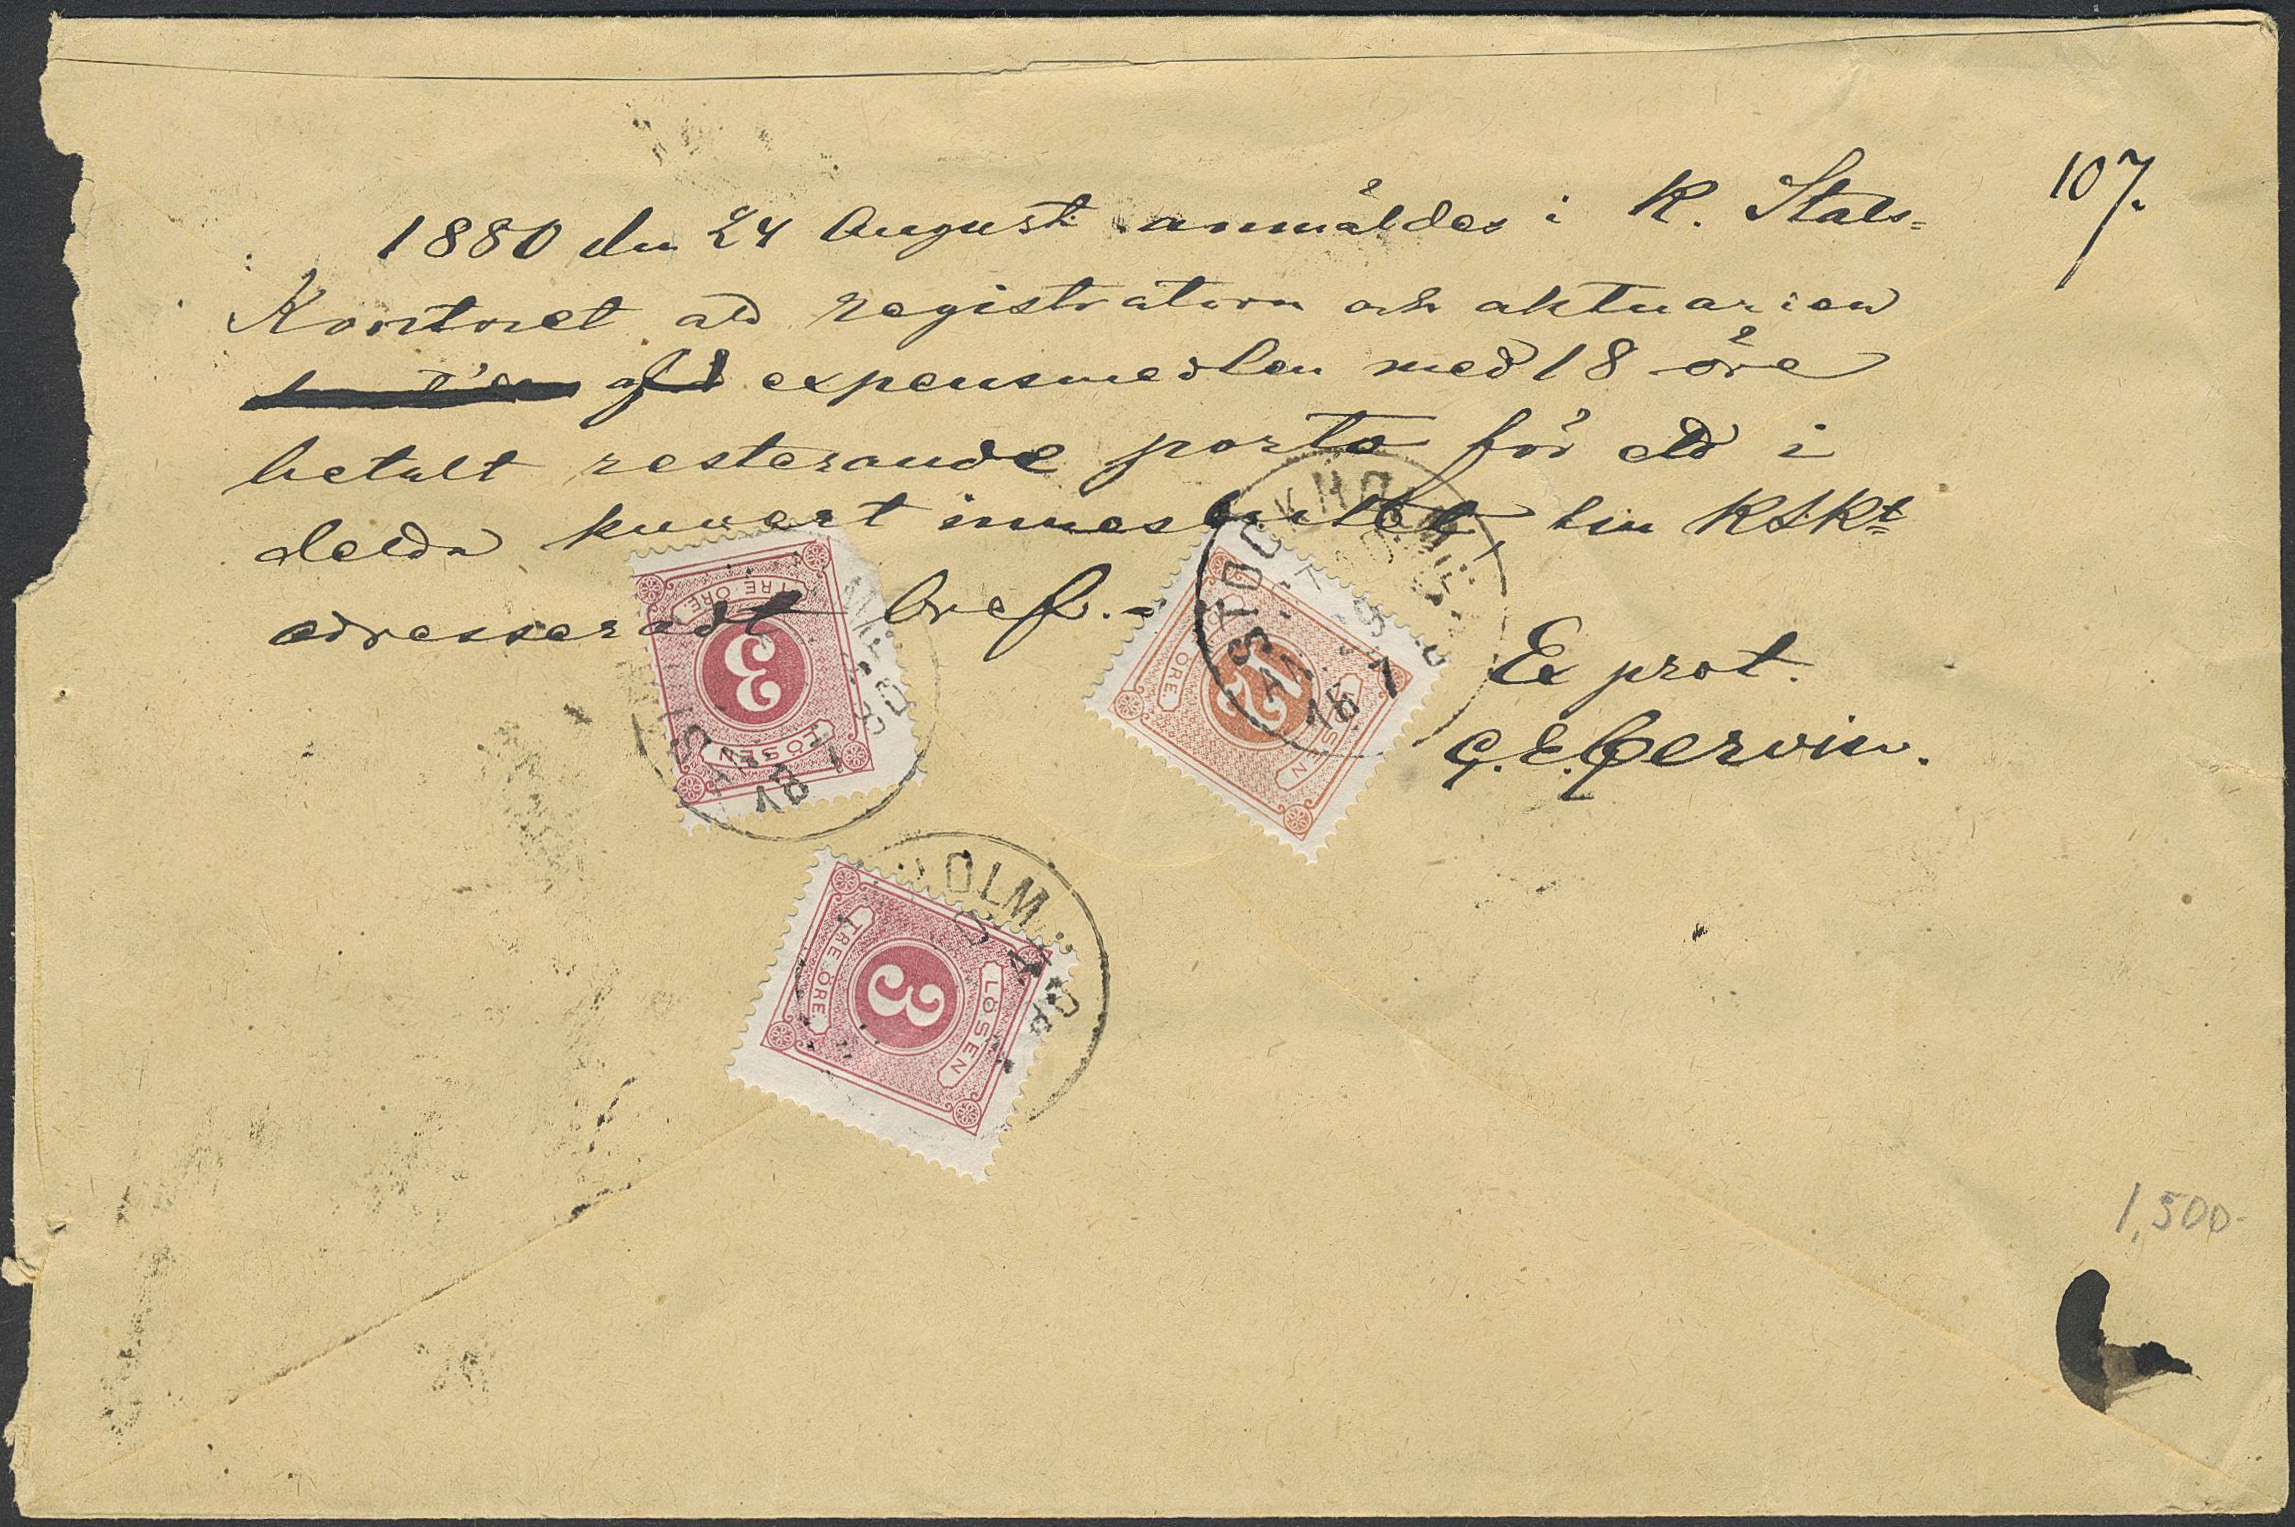 107.
1880 den 24 August anmäldes i K. Stats-
Kontoret att registratorn och aktuarien
af expensmedlen med 18 öre
betalt resterande porto för ett i
detta kuvert inneslutet, till KSKt
adresseradt bref.-
Ex prot.
G. E. Cervin.
TRE ÖRE.
3
LÖSEN
STOCKHOLM
ÖRE.
12
LÖSEN
TRE ÖRE.
3
LÖSEN
OLM
1,500-